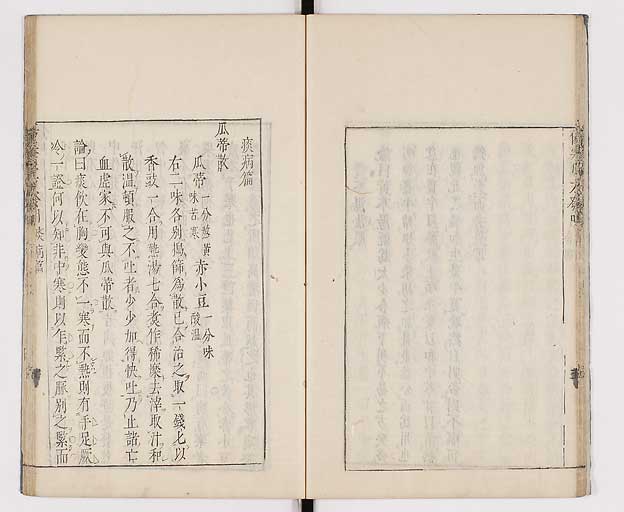 痰病篇
瓜蒂散
瓜蒂 一分熬黄 味苦寒 赤小豆 一分味酸温
右二味各别擣篩為散已合治之取一錢匕以
香豉一合用熱湯七合煑作稀糜去滓取汁和
散温頓服之不吐者少少加得快吐乃止諸亡
血虚家不可與瓜蒂散
論曰痰飲在胸變態不一寒而不熱則有手足厥
冷一證何以知非中寒則以乍緊之脈别之緊而
痰病篇